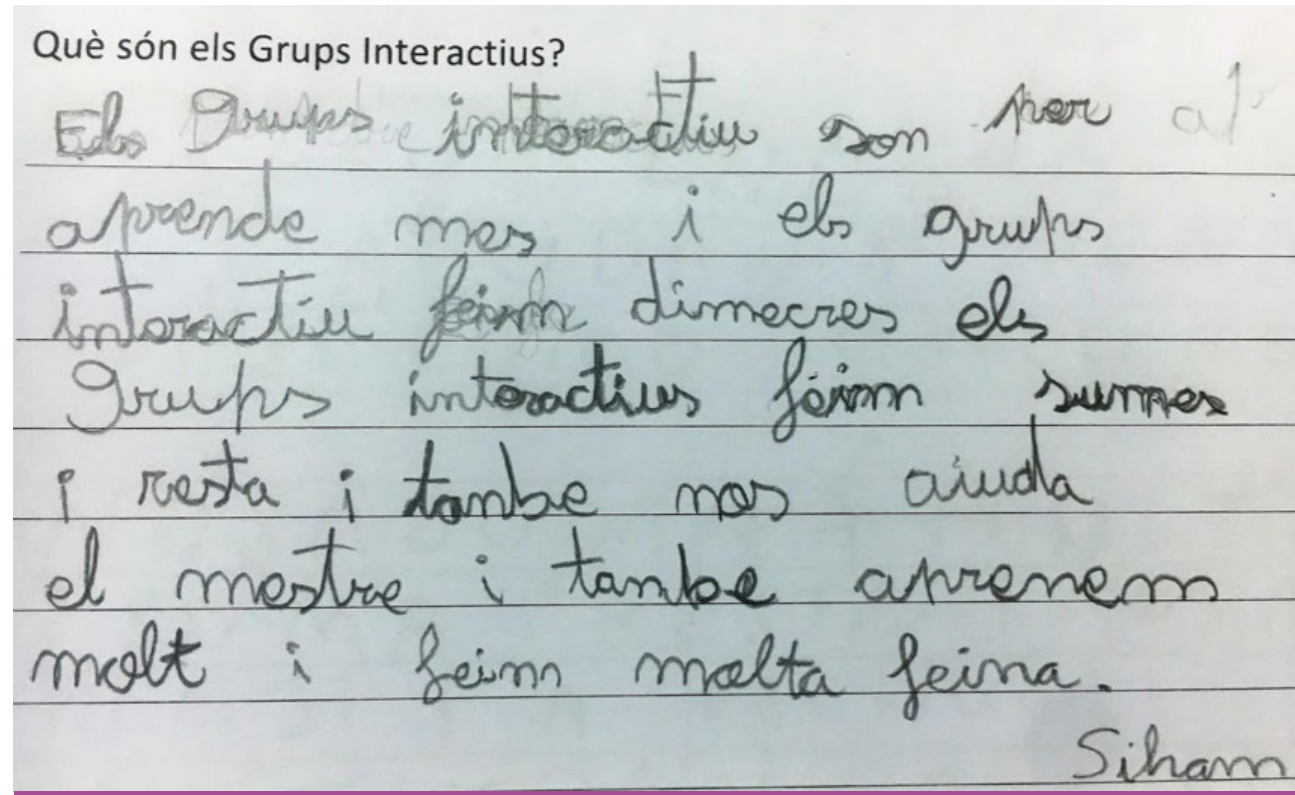 Què són els Grups Interactius?
Els Grups interactiu son per
aprende mes i els grups
interactiu feim dimecres els
Grups interactius feim sumes
i resta i tambe nos aiuda
el mestre i tambe aprenem
molt i feim molta feina.
Siham